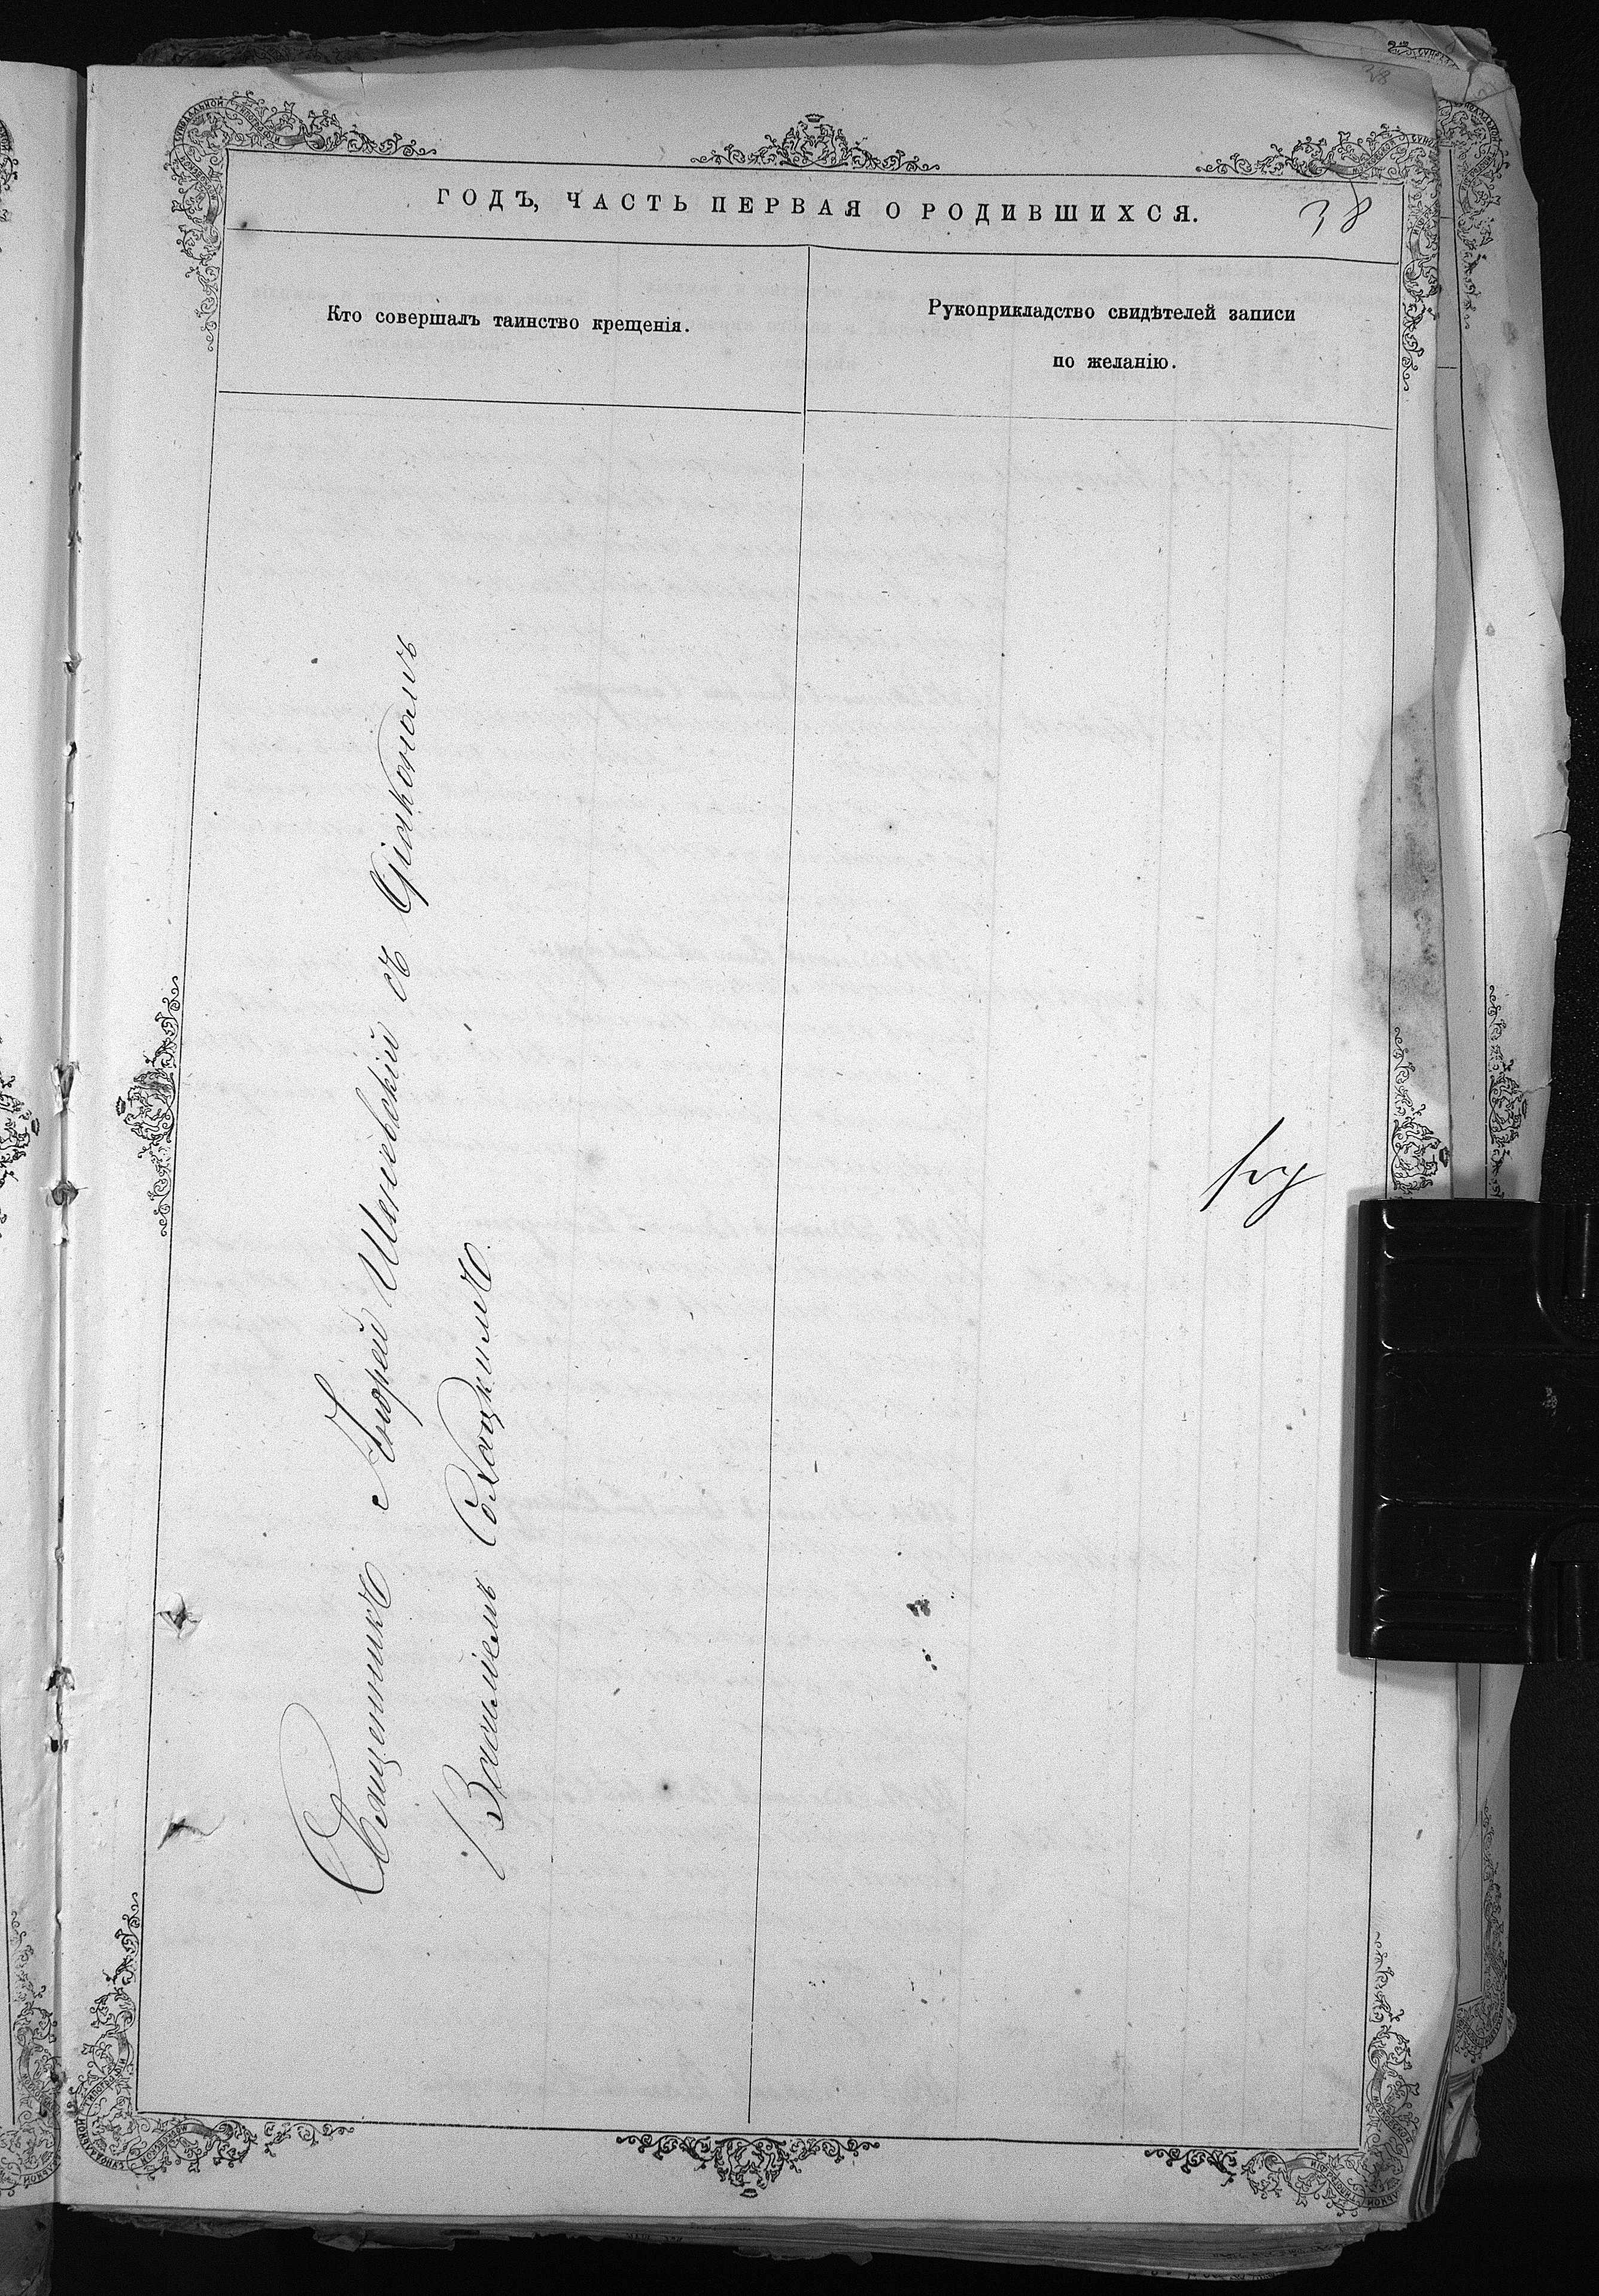 38
ГОДЪ, ЧАСТЬ ПЕРВАЯ О РОДИВШИХСЯ.
38
Кто совершалъ таинство крещенія.
Рукоприкладство свидѣтелей записи
по желанію.
Священникъ Андрей Шеневскій съ Діакономъ
Василіемъ Солоцкимъ.